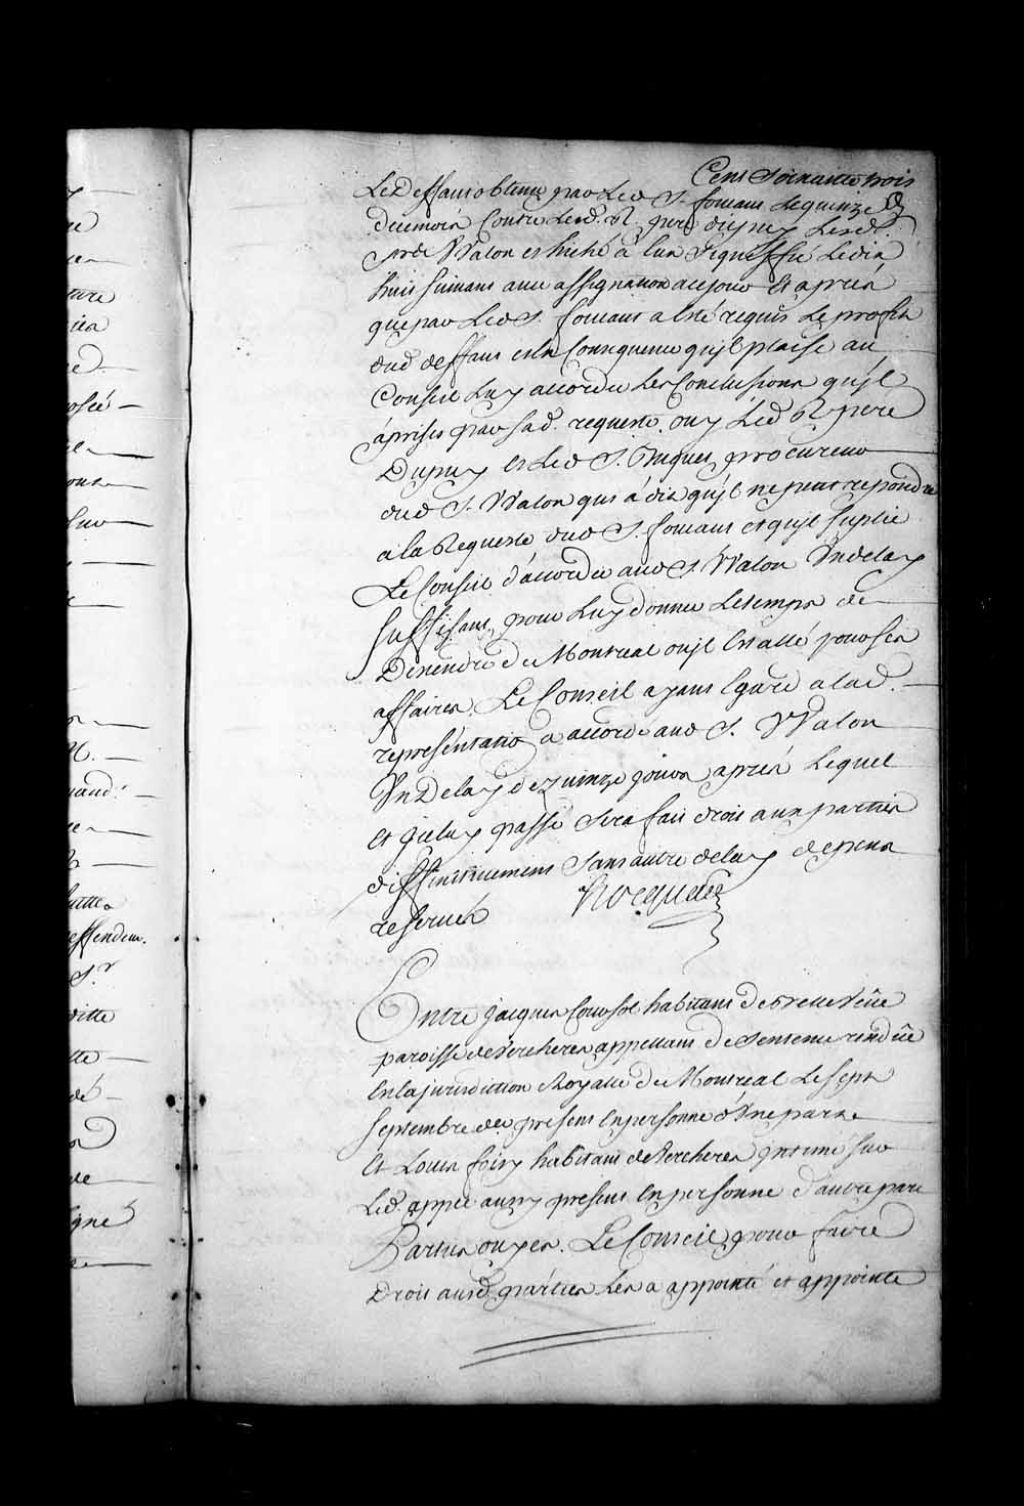 Cent soixante trois
Le Deffaut obtenu par Led S. foucaut Lequinze
decembre Contre Lesd. R. pere dupuy Lesd.
Sr de Walon et hiché a eux signiffié Le dix
huit suivant avec assignation a ce jour Et aprés
que par Led S. foucaut a esté requis Le profit
dud deffaut et en Consequence quil plaise au
Conseil Luy accorder Les Conclusions quil
á prises par sad. requeste. ouy Led R. pere
Dupuy et Led S. procureur
dud S. Walon qui á dit quil ne peut repondre
a la Requeste dud S. foucaut et quil suplie
Le Conseil d'accorder aud S. Walon Un delay
suffisant pour Luy donner Le temps de
Descendre de Montreal ou il Est allé pour ses
affaires. Le Conseil ayant Egard a lad.
representation a accordé aud S. Walon
Un Delay de quinze jours aprés Lequel
et iceluy passé sera fait droit aux parties
diffinitivement sans autre delay depens
reservés Hocquart
Entre jacques Courtois habitant de
paroisse de Vercheres appellant de sentence rendüe
En la jurisdiction Royalle de Montreal Le sept
septembre der. present En personne d'Une part
Et Louis foisy habitant de Vercheres intimé sur
Led. appel aussy present En personne d'autre part
Parties ouyes. Le Conseil pour faire
Droit ausd. parties Les a appointé et appointe
ture
osée
effendeur.
Sr
ditte
de
igné